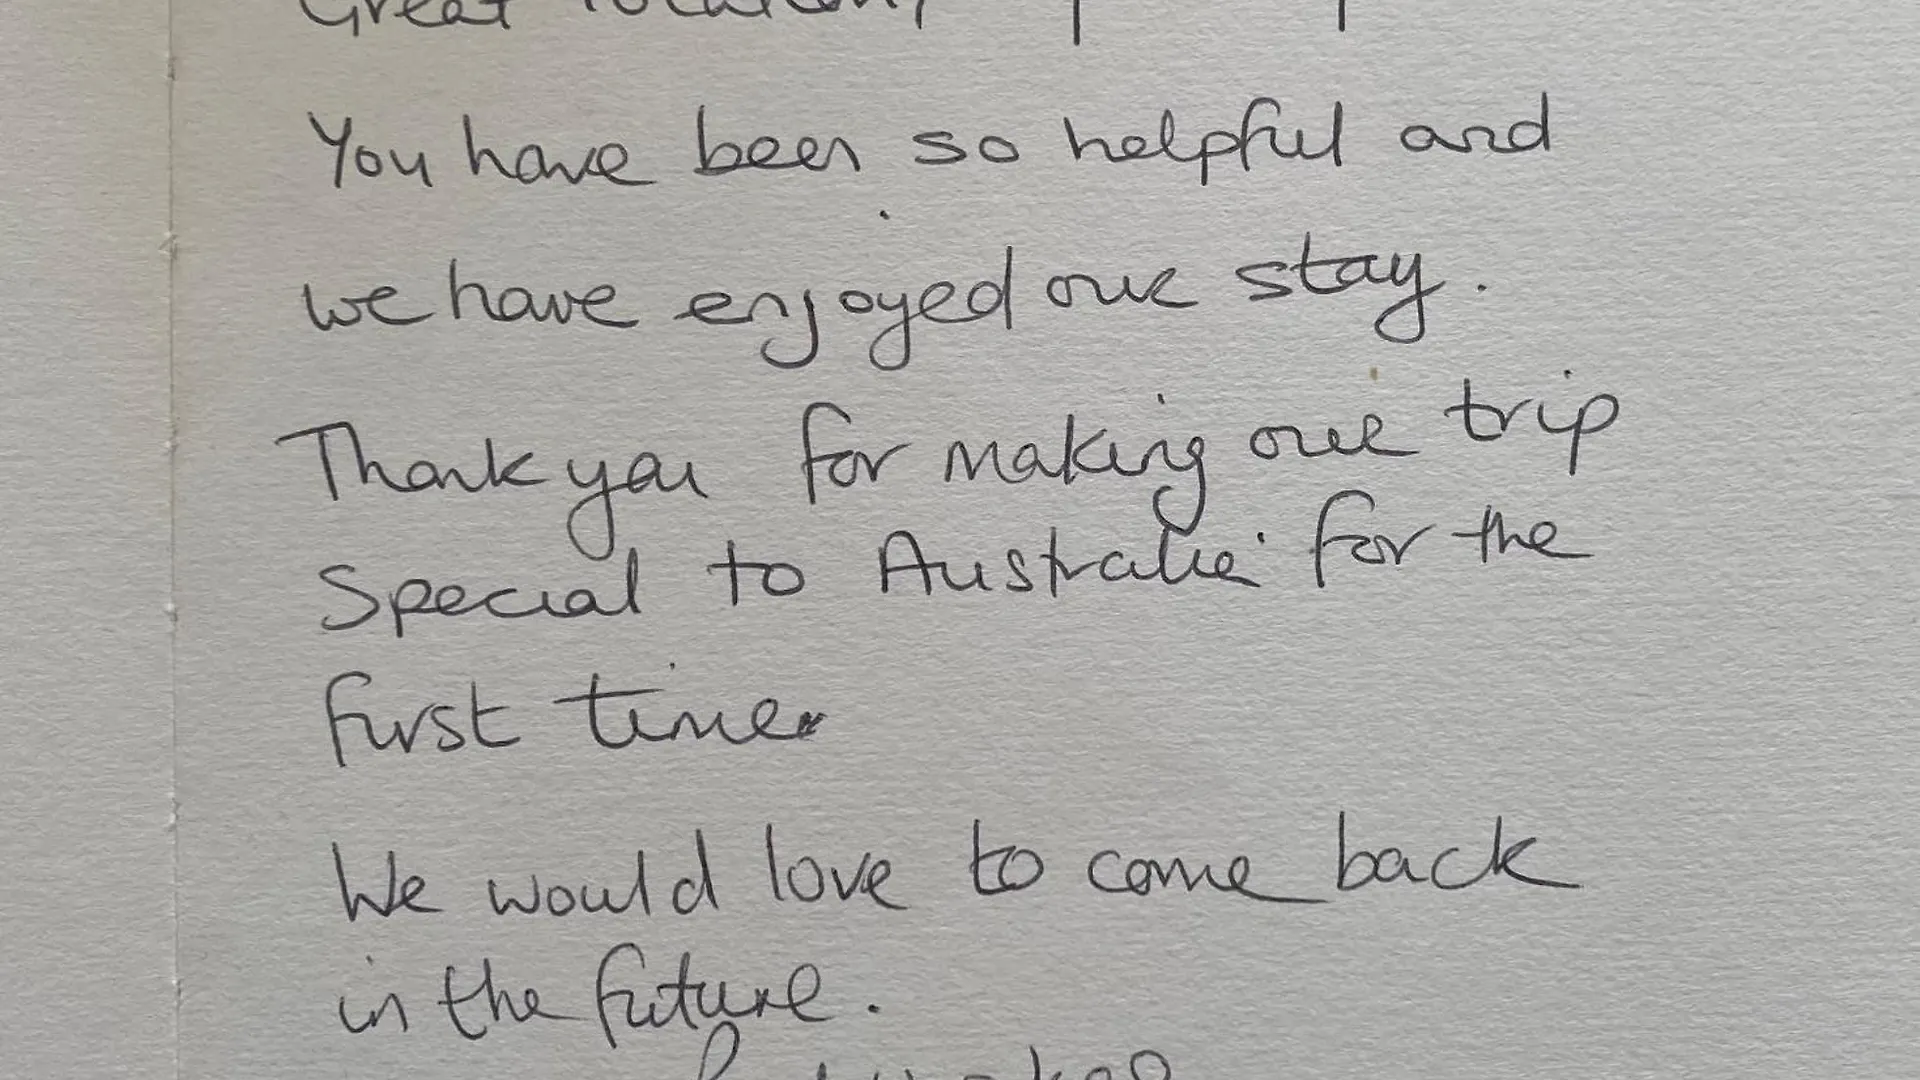 Great location,
You have been so helpful and
we have enjoyed our stay.
Thank you for making our trip
Special to Australia for the
first time.
We would love to come back
in the future.